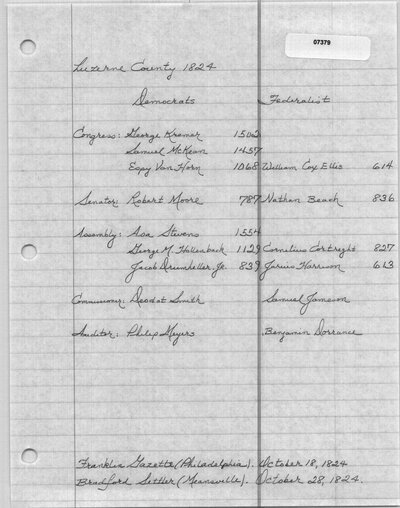 07379
Luzerne County 1824
Democrats Federalist
Congress: George Kremer 1502
Samuel McKean 1457
Espy Van Horn 1068 William Cox Ellis 614
Senator: Robert Moore 787 Nathan Beach 836
Assembly: Asa Stevens 1554
George M. Hollenback 1129 Cornelius Cortright 827
Jacob Drumheller, Jr. 839 Jarius Harrison 613
Commissioner: Deodat Smith Samuel Jameson
Auditor: Philip Meyers Benjamin Dorrance
Franklin Gazette (Philadelphia). October 18, 1824
Bradford Settler (Meansville). October 28, 1824.